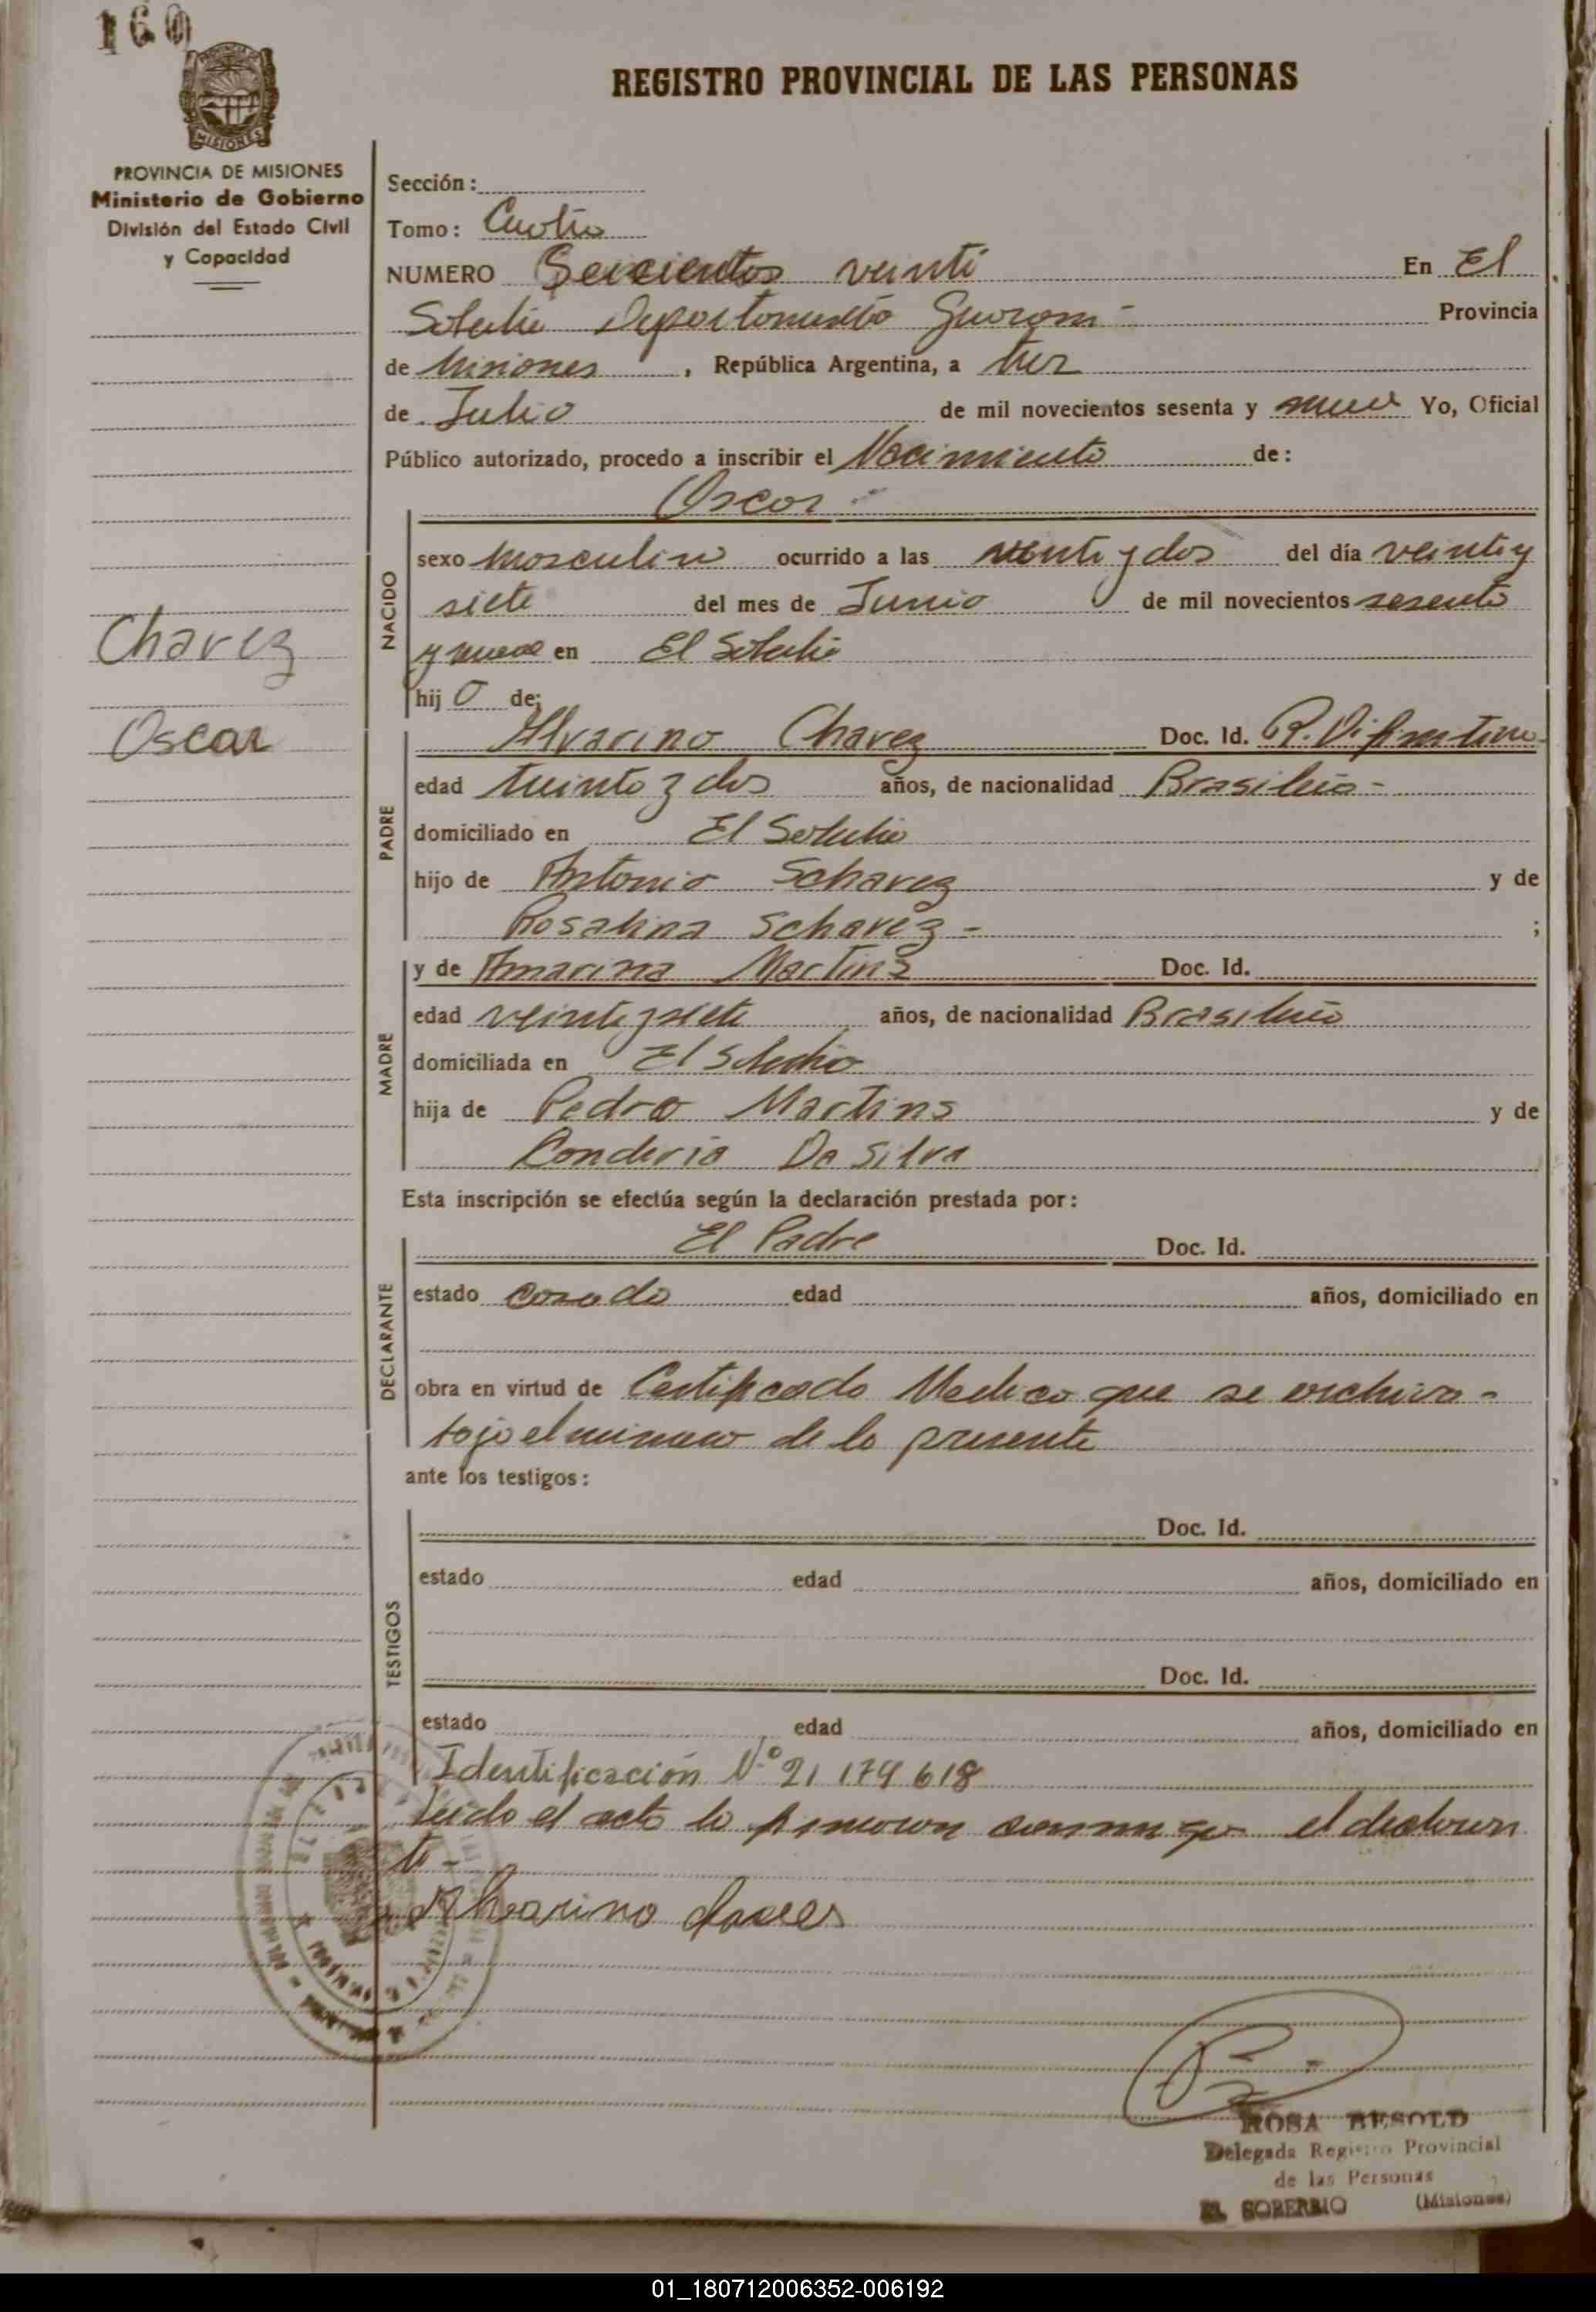 160
REGISTRO PROVINCIAL DE LAS PERSONAS
PROVINCIA DE MISIONES
Ministerio de Gobierno
División del Estado Civil
y Capacidad
Sección:
Tomo: Cuarto
NUMERO Seiscientos veinti En El
Soberbio Departamento Guarani - Provincia
de Misiones, República Argentina, a tres
de Julio de mil novecientos sesenta y nueve Yo, Oficial
Público autorizado, procedo a inscribir el Nacimiento de:
Oscar -
NACIDO
sexo masculino ocurrido a las veinte y dos del día veinte y
siete del mes de Junio de mil novecientos sesenta
y nueve en El Soberbio
hij o de:
Chavez
Oscar
PADRE
Alvarino Chavez Doc. Id.
edad treinta y dos años, de nacionalidad Brasileña -
domiciliado en El Soberbio
hijo de Antonio Schavez y de
Rosalina Schavez - ;
MADRE
y de Amarina Martins Doc. Id.
edad veinte y siete años, de nacionalidad Brasileña
domiciliada en El Soberbio
hija de Pedro Martins y de
Da Silva
Esta inscripción se efectúa según la declaración prestada por:
DECLARANTE
El Padre Doc. Id.
estado casado edad años, domiciliado en
obra en virtud de Certificado Medico que se archiva -
bajo el numero de la presente
ante los testigos:
TESTIGOS
Doc. Id.
estado edad años, domiciliado en
Doc. Id.
estado edad años, domiciliado en
Identificación Nº 21 179 618
Leido el acta la firmaron conmigo el declaran
te -
Alvarino
ROSA BESOLD
Delegada Registro Provincial
de las Personas
EL SOBERBIO (Misiones)
01_180712006352-006192